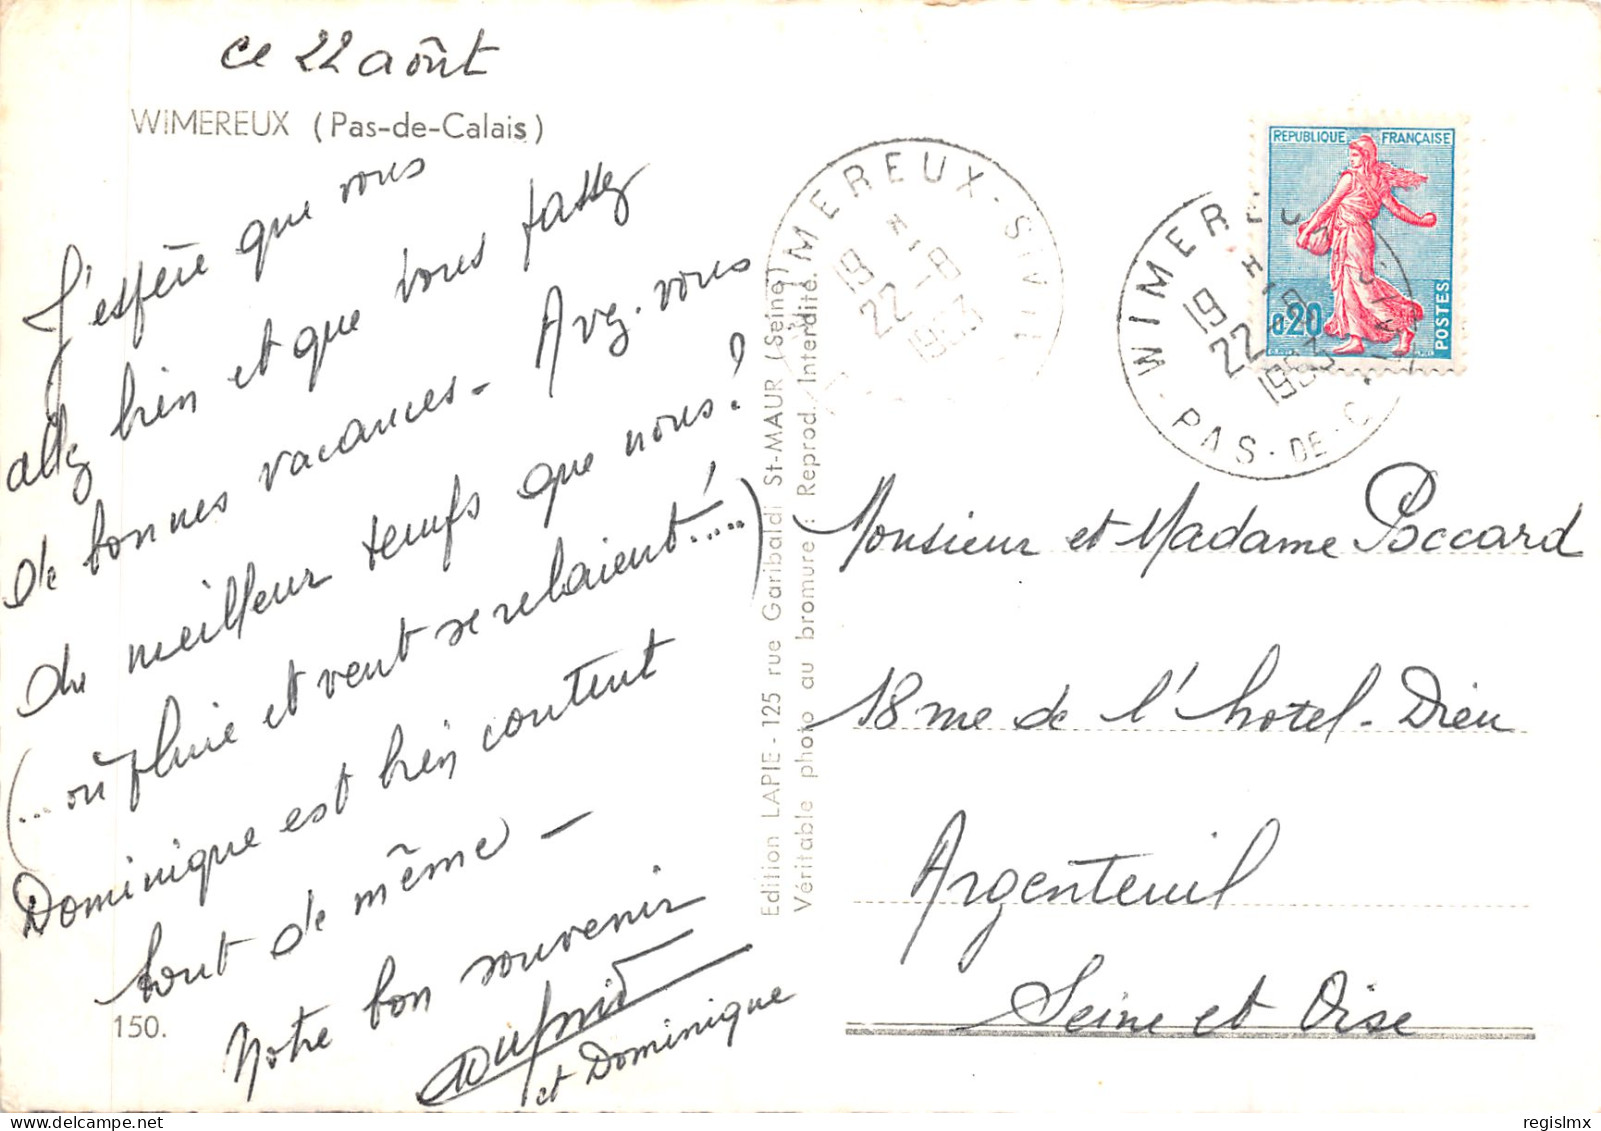 ce 22 août
WIMEREUX (Pas-de-Calais)
J'espère que vous
allez bien et que vous fassez
de bonnes vacances - Avez-vous
du meilleur temps que nous?
(... où pluie et vent se relaient!....)
Dominique est bien content
tout de même -
Notre bon souvenir
et Dominique
150.
Edition LAPIE - 125 rue Garibaldi St-MAUR (Seine)
Véritable photo au bromure : Reprod. Interdite.
WIMEREUX - S
19 H
22 - 8
1963
WIMEREUX
PAS - DE - C
19 H
22 - 8
1963
REPUBLIQUE FRANÇAISE
0,20
POSTES
Monsieur et Madame Poccard
18 rue de l'hotel-Dieu
Argenteuil
Seine et Oise
regislmx